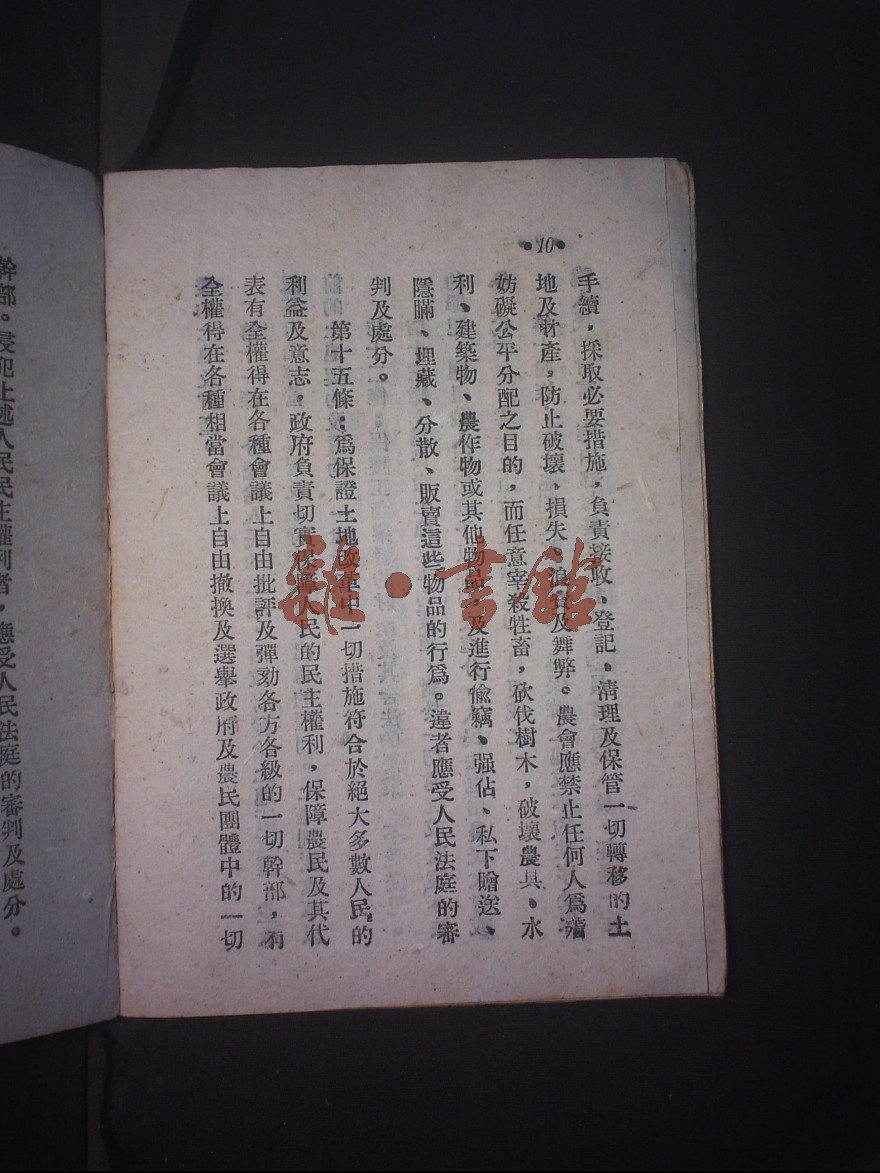 •10•
手續，採取必要措施，負責接收、登記、清理及保管一切轉移的土
地及財產，防止破壞、損失、浪費及舞弊。農會應禁止任何人爲着
妨礙公平分配之目的，而任意宰殺牲畜，砍伐樹木，破壞農具、水
利、建築物、農作物或其他物品，及進行偷竊、强佔、私下贈送、
隱瞞、埋藏、分散、販賣這些物品的行爲。違者應受人民法庭的審
判及處分。
第十五條：爲保證土地改革中一切措施符合於絕大多數人民的
利益及意志，政府負責切實保障人民的民主權利，保障農民及其代
表有全權得在各種會議上自由批評及彈劾各方各級的一切幹部，有
全權得在各種相當會議上自由撤換及選舉政府及農民團體中的一切
幹部。侵犯上述人民民主權利者，應受人民法庭的審判及處分。
雜·書館